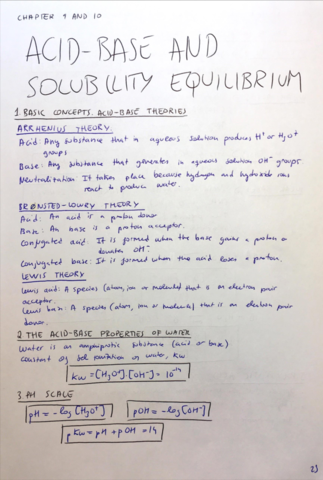 CHAPTER 9 AND 10
ACID-BASE AND
SOLUBILITY EQUILIBRIUM
1. BASIC CONCEPTS. ACID-BASE THEORIES
ARRHENIUS THEORY
Acid: Any substance that in aqueous solution produces H⁺ or H₃O⁺
groups
Base: Any substance that generates in aqueous solution OH⁻ groups.
Neutralitation: It takes place because hydrogen and hydroxide ions
react to produce water.
BRØNSTED-LOWRY THEORY
Acid: An acid is a proton donor
Base: An base is a proton acceptor.
Conjugated acid: It is formed when the base gains a proton or
OH⁻
Conjugated base: It is formed when the acid loses a proton.
LEWIS THEORY
Lewis acid: A species (atom, ion or molecule) that is an electron pair
acceptor
Lewis base: A species (atom, ion or molecule) that is an electron pair
donor.
2. THE ACID-BASE PROPERTIES OF WATER
Water is an amphiprotic substance (acid or base)
constant of self ionitation of water, Kw
Kw = [H₃O⁺].[OH⁻] = 10⁻¹⁴
3. PH SCALE
pH = -log [H₃O⁺] pOH = -log [OH⁻]
pKw = pH + pOH = 14